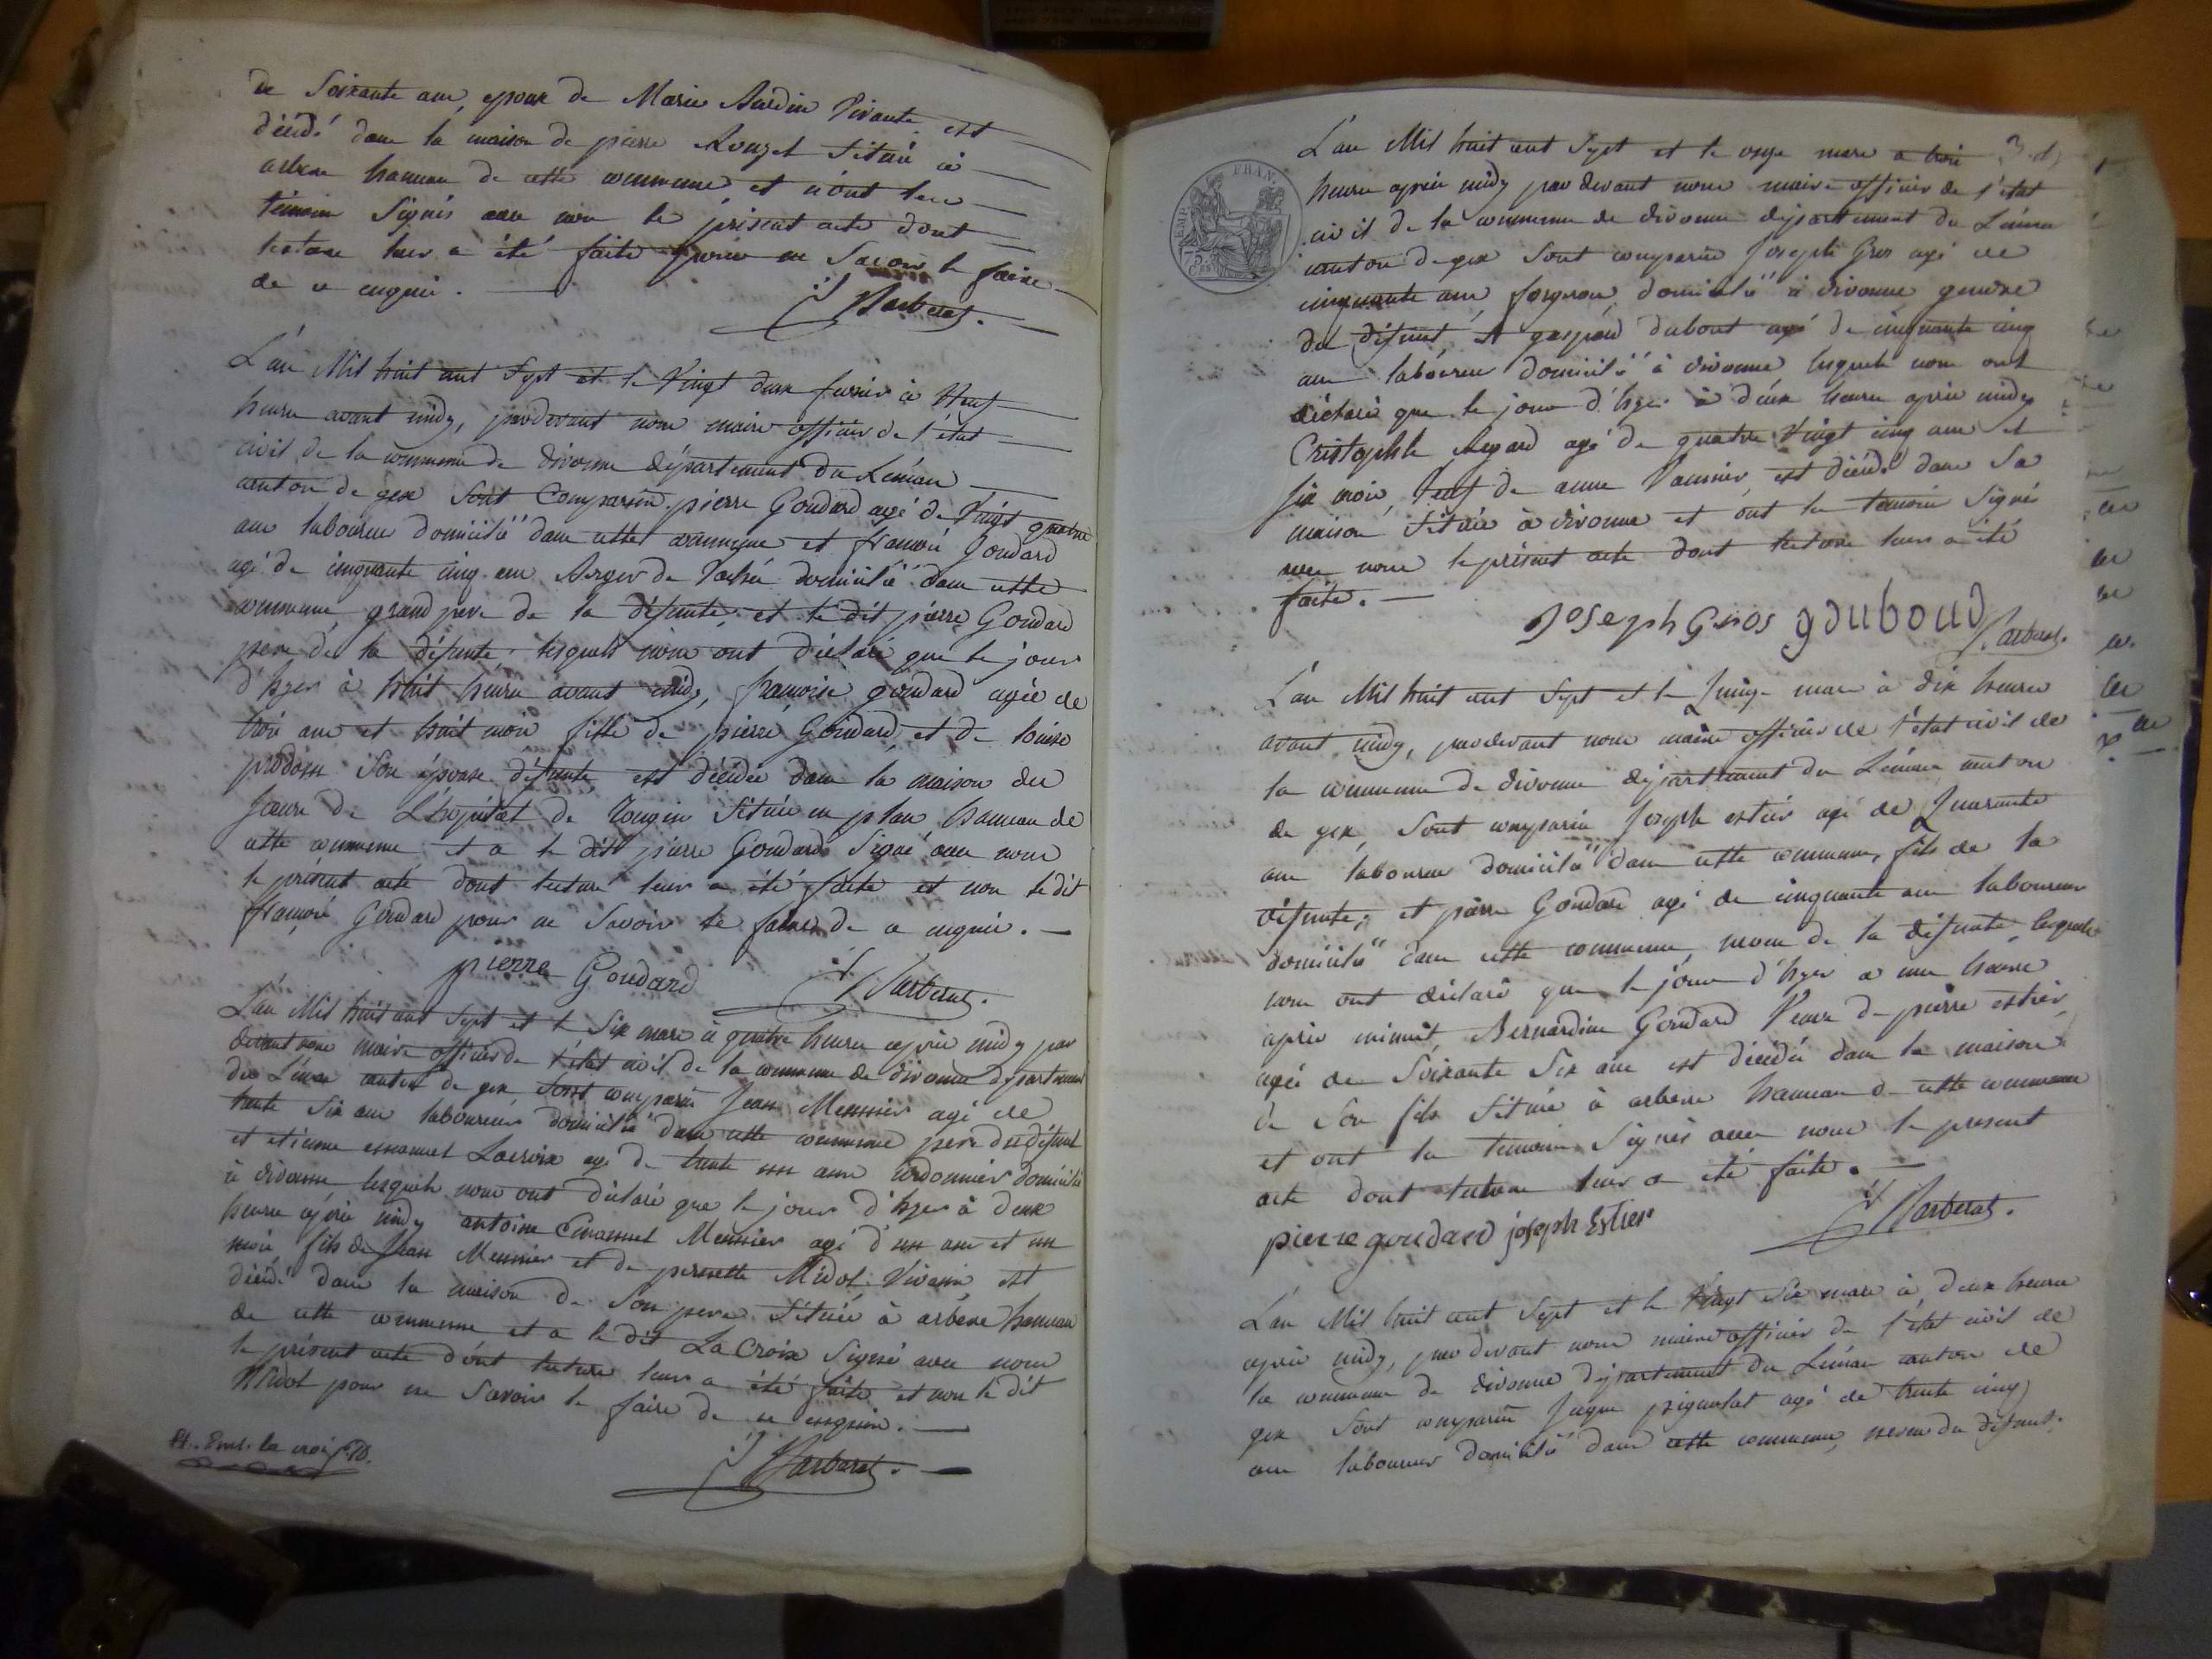 de soixante ans, epoux de Marie Aurdin vivante est
décédé dans la maison de pierre Rouget située à
arbere hameau de cette commune et n'ont les
témoins signés avec nous le présent acte dont
lecture leur a été faite pour ne savoir le faire
de ce enquis.
Barberat.
L'an Mil huit cent sept et le vingt deux fevrier à neuf
heures avant midy, pardevant nous maire officier de l'état
civil de la commune de divonne département du Léman
canton de gex sont comparus pierre Goudard agé de vingt quatre
ans laboureur domicilié dans cette commune et françois Goudard
agé de cinquante cinq ans Berger de vaches domicilié dans cette
commune, grand pere de la défunte, et le dit pierre Goudard
pere de la défunte, lesquels nous ont déclaré que le jour
d'hyer à huit heures avant midy, françoise goudard agée de
trois ans et huit mois fille de pierre Goudard et de louise
prodon son épouse défunte est décédée dans la maison des
sœurs de L'hopital de Tougin située en plan hameau de
cette commune et a le dit pierre Goudard signé avec nous
le présent acte dont lecture leur a été faite et non le dit
françois Goudard pour ne savoir le faire de ce enquis.
pierre Goudard Barberat.
L'an Mil huit cent sept et le six mars à quatre heures après midy par
devant nous maire officier de l'état civil de la commune de divonne département
du Léman canton de gex, sont comparus Jean Meunier agé de
trente six ans laboureur domicilié dans cette commune pere du défunt
et etienne emanuel Lacroix agé de trente un ans cordonnier domicilié
à divonne lesquels nous ont déclaré que le jour d'hyer à deux
heures après midy antoine Emanuel Meunier agé d'un an et un
mois fils de Jean Meunier et de pernette Midol vivans, est
décédé dans la maison de son pere située à arbere hameau
de cette commune et a le dit La Croix signé avec nous
le présent acte dont lecture leur a été faite et non le dit
Midol pour ne savoir le faire de ce enquis.
Et. Eml. la croix
Barberat.
L'an Mil huit cent sept et le onze mars à trois
heures après midy par devant nous maire officier de l'état
civil de la commune de divonne département du Léman
canton de gex sont comparus Joseph Gros agé de
cinquante ans forgeron domicilié à divonne gendre
du défunt, et gaspard dubout agé de cinquante cinq
ans laboureur domicilié à divonne lesquels nous ont
déclaré que le jour d'hyer à deux heures après midy
Cristophle Regard agé de quatre vingt cinq ans et
six mois, veuf de anne Vaunier est décédé dans sa
maison située à divonne et ont les temoins signés
avec nous le présent acte dont lecture leurs a été
faite.
Joseph Gros gdubout Barberat.
L'an Mil huit cent sept et le quinze mars à dix heures
avant midy, pardevant nous maire officier de l'état civil de
la commune de divonne département du Léman canton
de gex, sont comparus Joseph estier agé de quarante
ans laboureur domicilié dans cette commune, fils de la
défunte, et pierre Goudard agé de cinquante ans laboureur
domicilié dans cette commune, neveu de la défunte lesquels
nous ont déclaré que le jour d'hyer à une heure
après minuit, Bernardine Goudard veuve de pierre estier,
agée de soixante six ans est décédée dans la maison
de son fils située à arbere hameau de cette commune
et ont les temoins signés avec nous le present
acte dont lecture leur a été faite.
pierre goudard joseph Estier Barberat.
L'an Mil huit cent sept et le vingt six mars à deux heures
après midy, par devant nous maire officier de l'état civil de
la commune de divonne département du Léman canton de
gex sont comparus Jaque pignolat agé de trente cinq
ans laboureur domicilié dans cette commune, neveu du défunt,